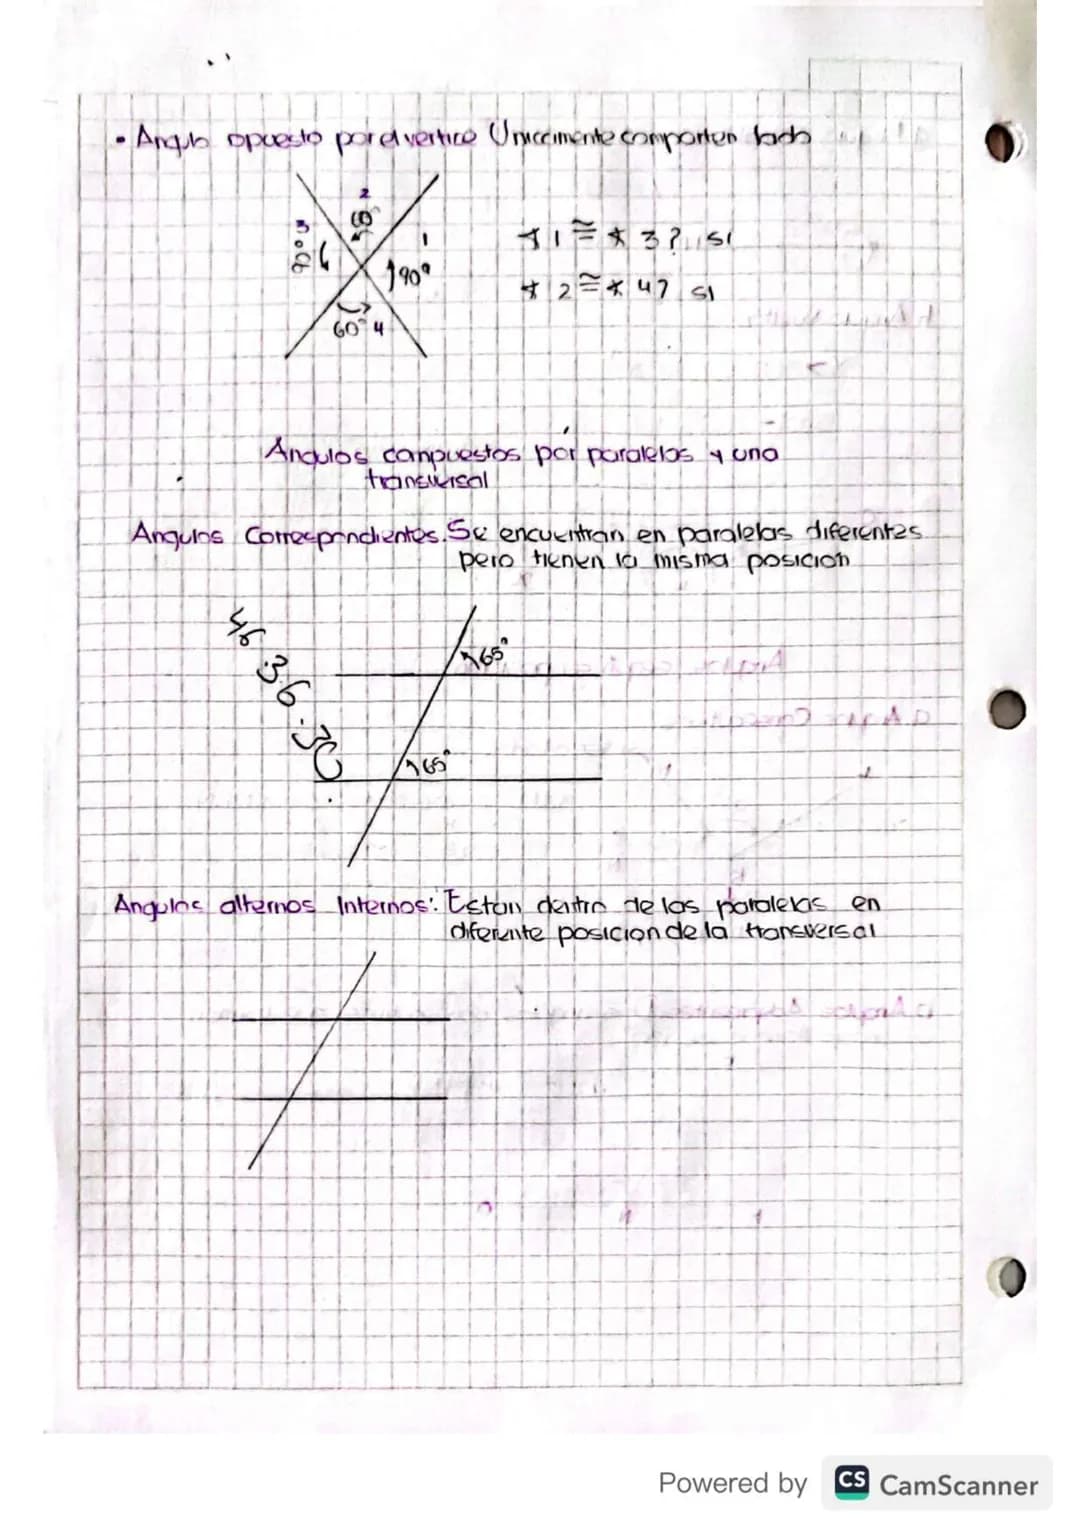 • Angulo opuesto por el vertice Unicamente comparten lado
2
3
60°
1
90°
90°
60° 4
∡ 1 ≅ ∡ 3? si
∡ 2 ≅ ∡ 4? si
Angulos compuestos por paralelas y una
transversal
Angulos Correspondientes. Se encuentran en paralelas diferentes
pero tienen la misma posicion
65°
65°
Angulos alternos Internos: Estan dentro de las paralelas en
diferente posicion de la transversal
Powered by CS CamScanner